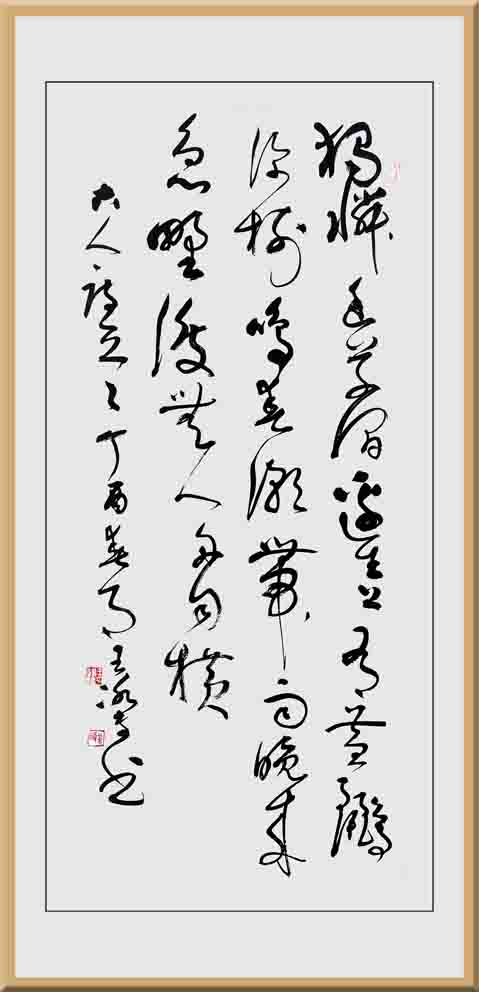 獨憐幽草澗邊生上有黃鸝
深樹鳴春潮帶雨晚來
急野渡無人舟自橫
古人詩 丁酉春月王 書